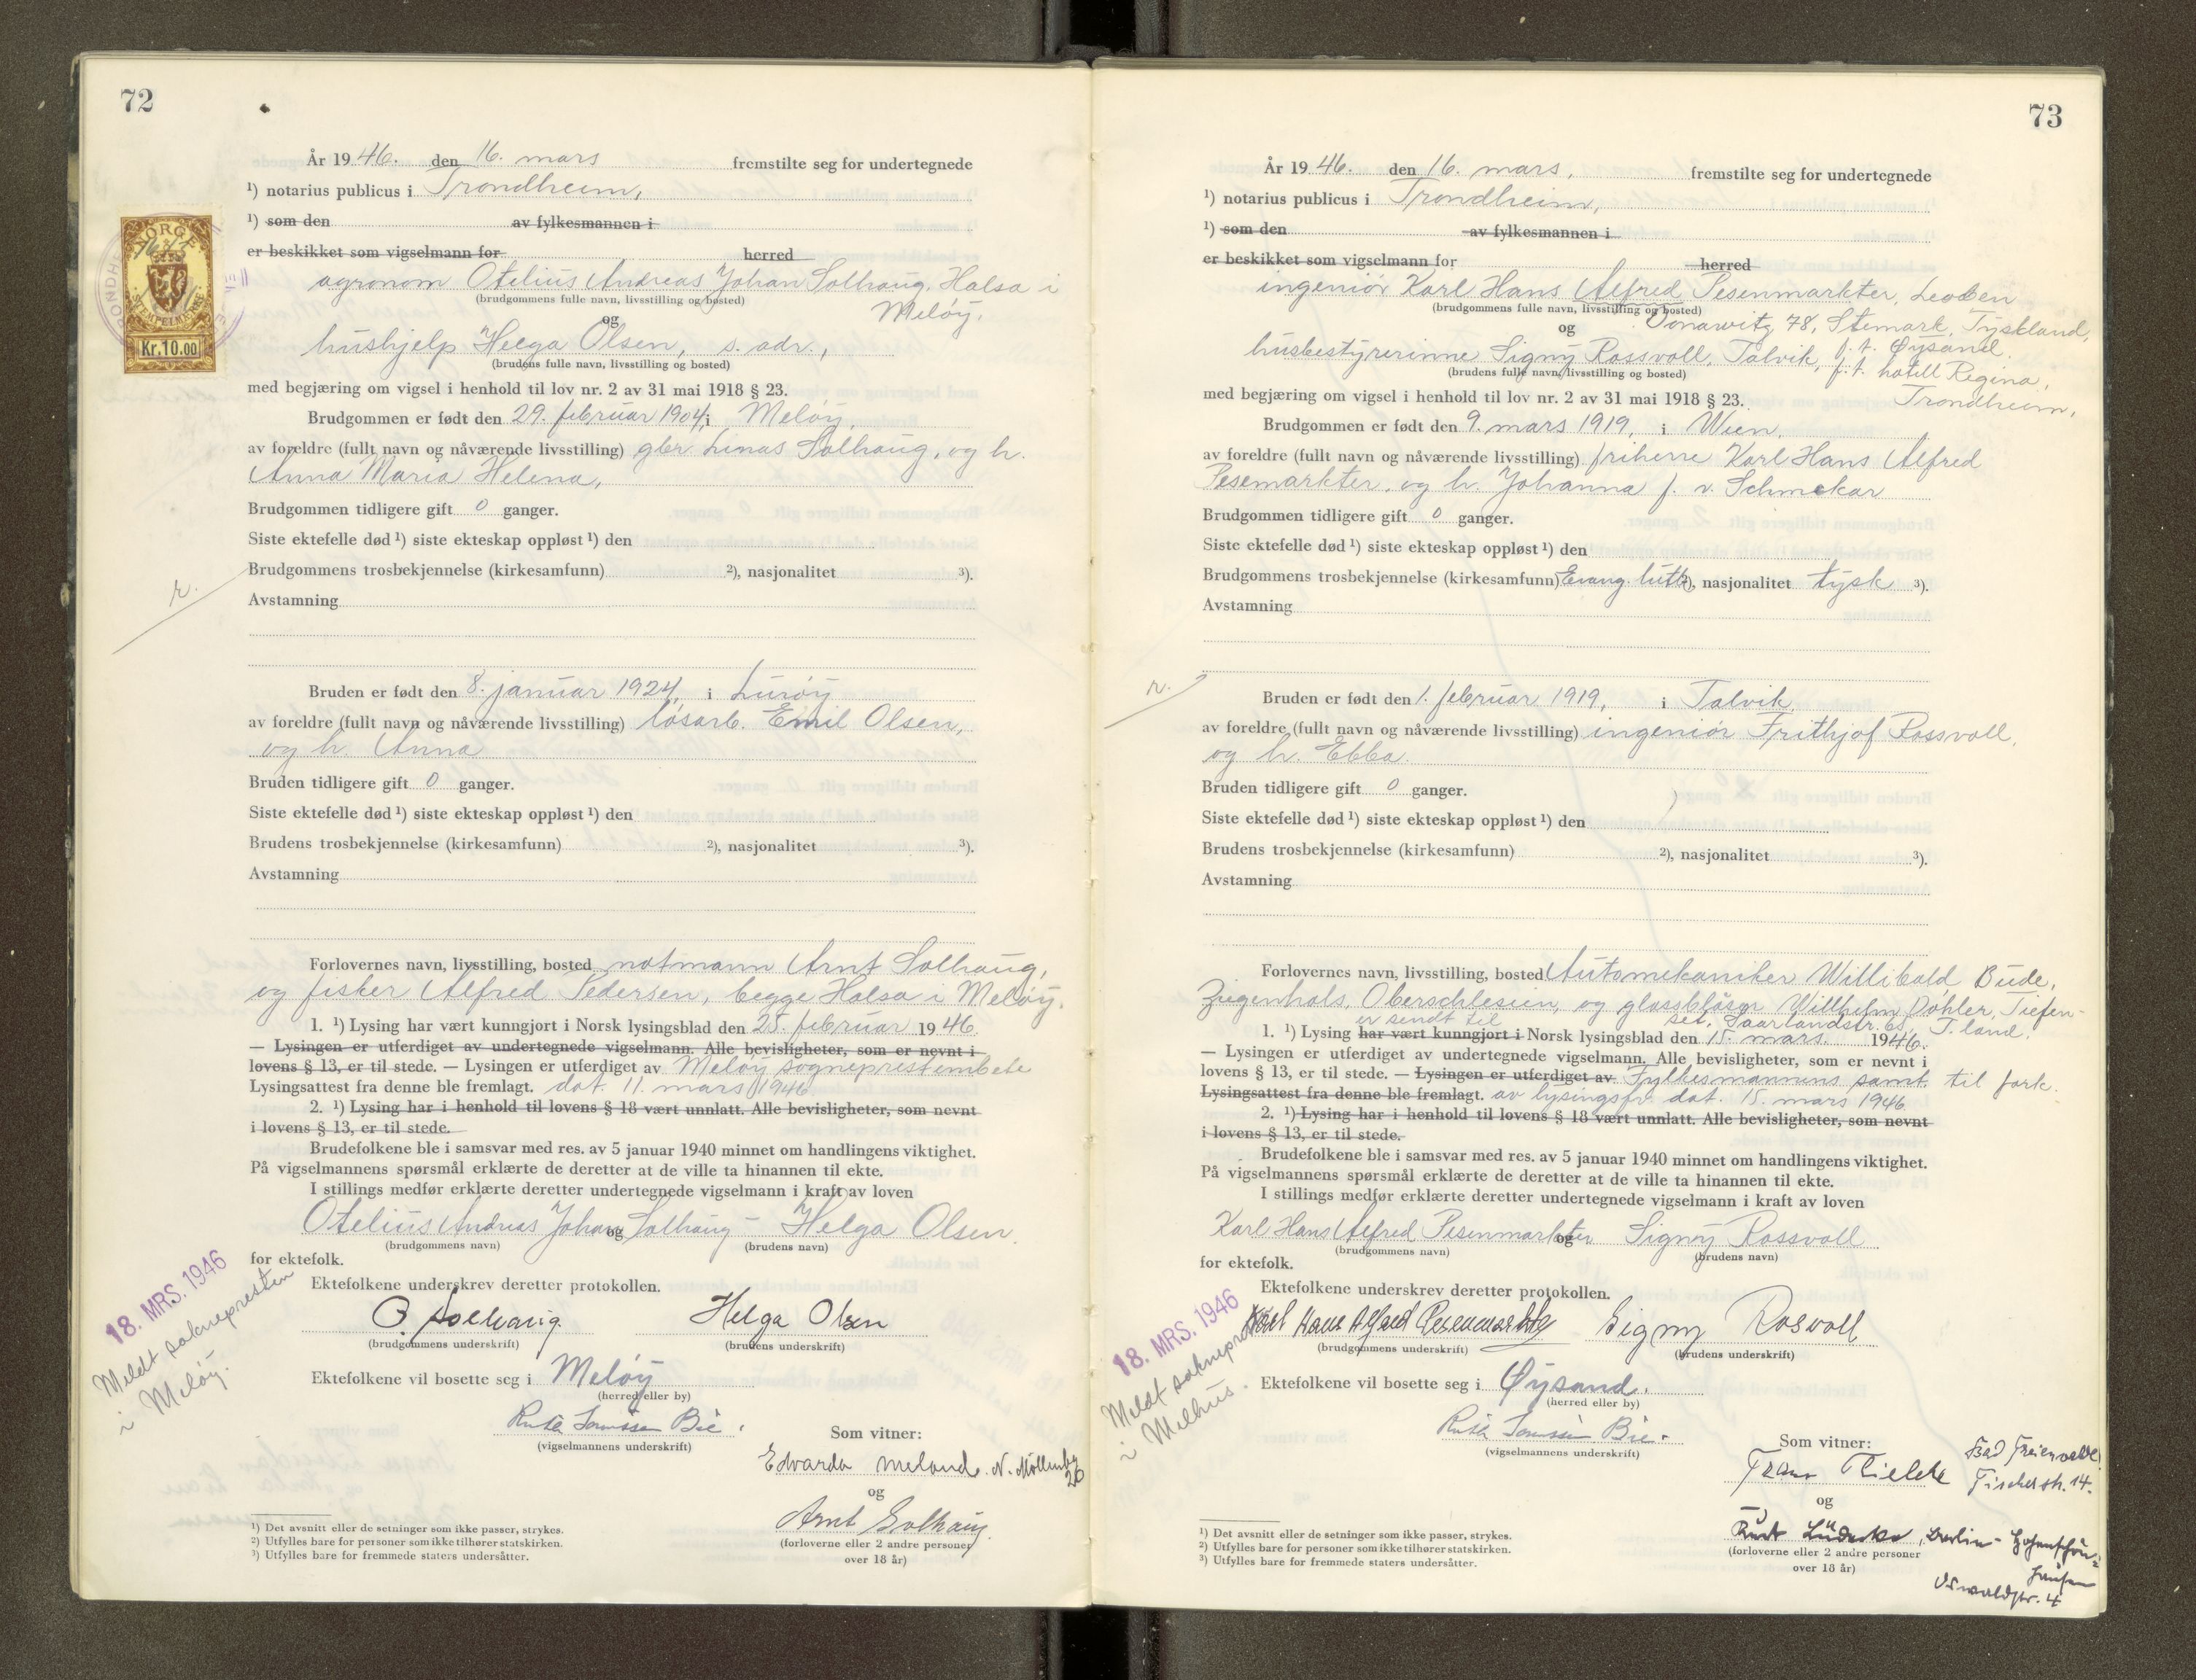 72
År 1946. den 16. mars fremstilte seg for undertegnede
¹) notarius publicus i Trondheim,
¹) som den av fylkesmannen i
er beskikket som vigselmann for herred
NORGE
STEMPELMERKE
Kr.10.00
agronom Otelius Andreas Johan Solhaug, Halsa i
(brudgommens fulle navn, livsstilling og bosted)
Meløy.
og
hushjelp Helga Olsen, s. adr.,
(brudens fulle navn, livsstilling og bosted)
med begjæring om vigsel i henhold til lov nr. 2 av 31 mai 1918 § 23.
Brudgommen er født den 29. februar 1904, i Meløy,
av foreldre (fullt navn og nåværende livsstilling) gbr. Linas Solhaug, og h.
Anna Maria Helena,
Brudgommen tidligere gift 0 ganger.
Siste ektefelle død ¹) siste ekteskap oppløst ¹) den
Brudgommens trosbekjennelse (kirkesamfunn) ²), nasjonalitet ³).
r.
Avstamning
Bruden er født den 8. januar 1924, i Lurøy
av foreldre (fullt navn og nåværende livsstilling) løsarb. Emil Olsen,
og h. Anna
Bruden tidligere gift 0 ganger.
Siste ektefelle død ¹) siste ekteskap oppløst ¹) den
Brudens trosbekjennelse (kirkesamfunn) ²), nasjonalitet ³).
Avstamning
Forlovernes navn, livsstilling, bosted notmann Arnt Solhaug,
og fisker Alfred Pedersen, begge Halsa i Meløy.
1. ¹) Lysing har vært kunngjort i Norsk lysingsblad den 25. februar 1946.
— Lysingen er utferdiget av undertegnede vigselmann. Alle bevisligheter, som er nevnt i
lovens § 13, er til stede. — Lysingen er utferdiget av Meløy sogneprestembete
Lysingsattest fra denne ble fremlagt. dat. 11. mars 1946.
2. ¹) Lysing har i henhold til lovens § 18 vært unnlatt. Alle bevisligheter, som nevnt
i lovens § 13, er til stede.
Brudefolkene ble i samsvar med res. av 5 januar 1940 minnet om handlingens viktighet.
På vigselmannens spørsmål erklærte de deretter at de ville ta hinannen til ekte.
I stillings medfør erklærte deretter undertegnede vigselmann i kraft av loven
Otelius Andreas Johan Solhaug og Helga Olsen.
(brudgommens navn) (brudens navn)
for ektefolk.
Ektefolkene underskrev deretter protokollen.
18. MRS. 1946
Meldt soknepresten
i Meløy.
O. Solhaug. Helga Olsen
(brudgommens underskrift) (brudens underskrift)
Ektefolkene vil bosette seg i Meløy
(herred eller by)
(vigselmannens underskrift)
Som vitner:
Edvarda Meland. N. Møllenbg 26
og
Arnt Solhaug.
(forloverne eller 2 andre personer
over 18 år)
¹) Det avsnitt eller de setninger som ikke passer, strykes.
²) Utfylles bare for personer som ikke tilhører statskirken.
³) Utfylles bare for fremmede staters undersåtter.
73
År 1946. den 16. mars, fremstilte seg for undertegnede
¹) notarius publicus i Trondheim,
¹) som den av fylkesmannen i
er beskikket som vigselmann for herred
ingeniør Karl Hans Alfred Pesenmarkter, Leoben
(brudgommens fulle navn, livsstilling og bosted)
og Donawitz 78, Stemark, Tyskland,
f. t. Øysand.
husbestyrerinne Signy Rossvoll, Talvik, f. t. hotell Regina,
(brudens fulle navn, livsstilling og bosted)
Trondheim,
med begjæring om vigsel i henhold til lov nr. 2 av 31 mai 1918 § 23.
Brudgommen er født den 9. mars 1919, i Wien.
av foreldre (fullt navn og nåværende livsstilling) friherre Karl Hans Alfred
Pesemarkter, og h. Johanna f. v. Schmekar
Brudgommen tidligere gift 0 ganger.
Siste ektefelle død ¹) siste ekteskap oppløst ¹) den
Brudgommens trosbekjennelse (kirkesamfunn) Evang. luth. ²), nasjonalitet tysk ³).
Avstamning
r.
Bruden er født den 1. februar 1919, i Talvik,
av foreldre (fullt navn og nåværende livsstilling) ingeniør Frithjof Rossvoll,
og h. Ebba.
Bruden tidligere gift 0 ganger.
Siste ektefelle død ¹) siste ekteskap oppløst ¹) den
Brudens trosbekjennelse (kirkesamfunn) ²), nasjonalitet ³).
Avstamning
Forlovernes navn, livsstilling, bosted Automekaniker Willibald Bude,
Ziegenhals, Oberschlesien, og glassblåser Willhelm Döhler, Tiefen-
er sendt til
set. Saarlandstr. 65, T.land.
1. ¹) Lysing har vært kunngjort i Norsk lysingsblad den 15. mars. 1946.
— Lysingen er utferdiget av undertegnede vigselmann. Alle bevisligheter, som er nevnt i
lovens § 13, er til stede. — Lysingen er utferdiget av Fylkesmannens samt. til fork.
Lysingsattest fra denne ble fremlagt. av lysingsfr. dat. 15. mars 1946.
2. ¹) Lysing har i henhold til lovens § 18 vært unnlatt. Alle bevisligheter, som nevnt
i lovens § 13, er til stede.
Brudefolkene ble i samsvar med res. av 5 januar 1940 minnet om handlingens viktighet.
På vigselmannens spørsmål erklærte de deretter at de ville ta hinannen til ekte.
I stillings medfør erklærte deretter undertegnede vigselmann i kraft av loven
Karl Hans Alfred Pesenmarkter og Signy Rossvoll
(brudgommens navn) (brudens navn)
for ektefolk.
Ektefolkene underskrev deretter protokollen.
18. MRS. 1946
Meldt soknepr.
i Melhus.
Karl Hans Alfred Pesenmarkter Signy Rosvoll
(brudgommens underskrift) (brudens underskrift)
Ektefolkene vil bosette seg i Øysand.
(herred eller by)
(vigselmannens underskrift)
Som vitner:
Bad Freienwalde
Franz Thielcke Fischerstr. 14.
og
Kurt Lüdecke, Berlin-Hohenschön-
hausen
(forloverne eller 2 andre personer
over 18 år)
Oswaldstr. 4
¹) Det avsnitt eller de setninger som ikke passer, strykes.
²) Utfylles bare for personer som ikke tilhører statskirken.
³) Utfylles bare for fremmede staters undersåtter.